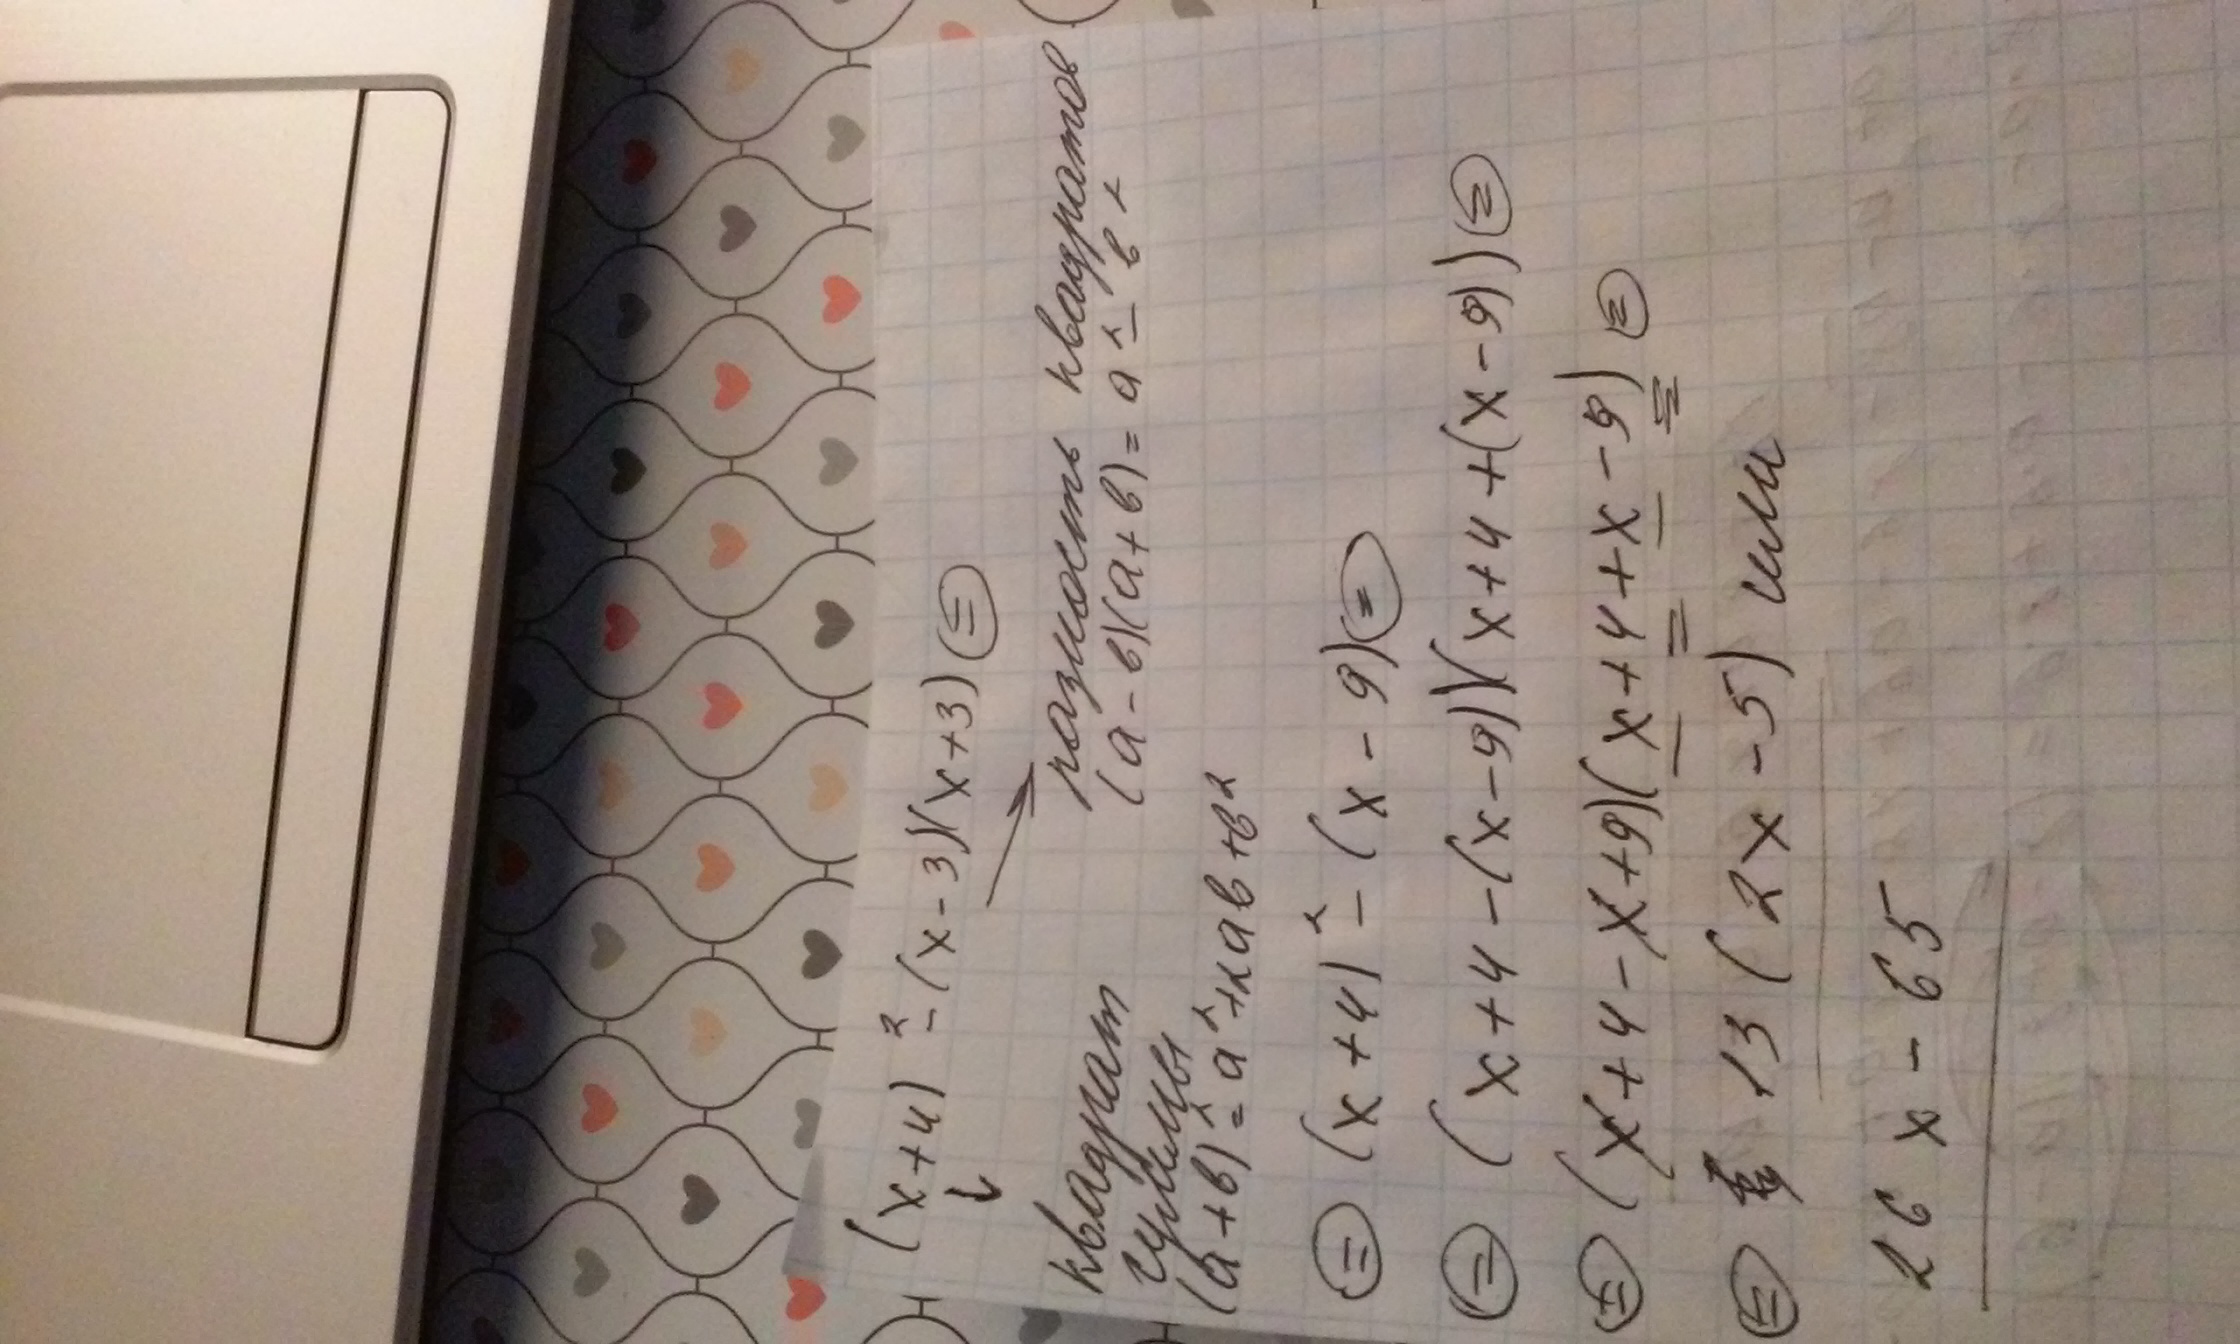 (x+4)² - (x-3)(x+3) =
квадрат суммы
(a+в)² = a² + 2aв + в²
разность квадратов
(a-в)(a+в) = a² - в²
= (x+4)² - (x-9) =
= (x+4-(x-9))(x+4+(x-9)) =
= (x+4-x+9)(x+4+x-9) =
= 13(2x-5) или
26x-65